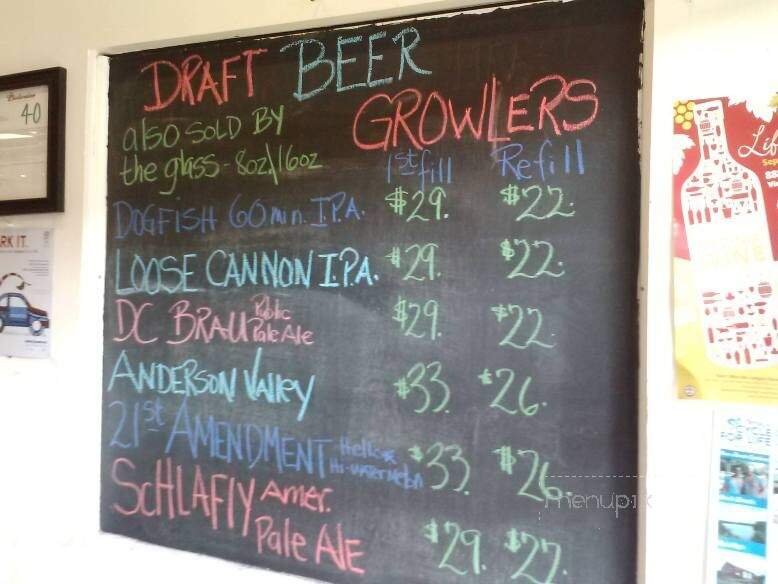 DRAFT BEER
GROWLERS
also SOLD BY
the glass - 8oz\16oz
1st fill Refill
DOGFISH 60 min. I.P.A. $29. $22.
LOOSE CANNON I.P.A. $29. $22.
DC BRAU Public Pale Ale $29. $22.
ANDERSON VALLEY $33. $26.
21st AMENDMENT Hell or Hi-water melon $33. $26.
SCHLAFLY Amer. Pale ALE $29. $22.
40
RK IT.
Life
Sep
menupix